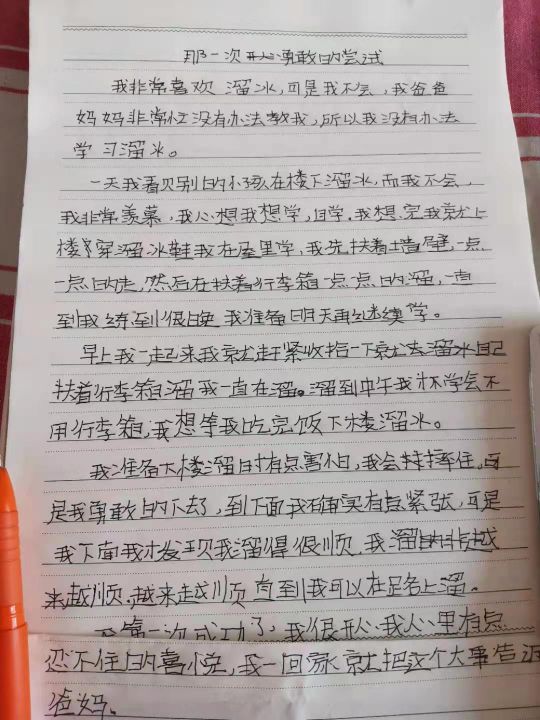 那一次我勇敢的尝试
我非常喜欢溜冰,可是我不会,我爸爸
妈妈非常忙没有办法教我,所以我没有办法
学习溜冰。
一天我看见别的小孩在楼下溜冰,而我不会,
我非常羡慕,我心想我想学,自学。我想完我就上
楼穿溜冰鞋我在屋里学,我先扶着墙壁,一点
一点的走,然后在扶着行李箱一点点的溜,一直
到我练到很晚 我准备明天再继续学。
早上我一起来我就赶紧收拾一下就去溜冰自己
扶着行李箱溜我一直在溜。溜到中午我才学会不
用行李箱,我想等我吃完饭下楼溜冰。
我准备下楼溜时有点害怕,我会摔住,可
是我勇敢的下去了,到下面我确实有点紧张,可是
我下面我才发现我溜得很顺,我溜的越
来越顺,越来越顺 直到我可以在路上溜。
第一次成功了,我很开心我心里有点
忍不住的喜悦,我一回家就把这个大事告诉
爸妈。